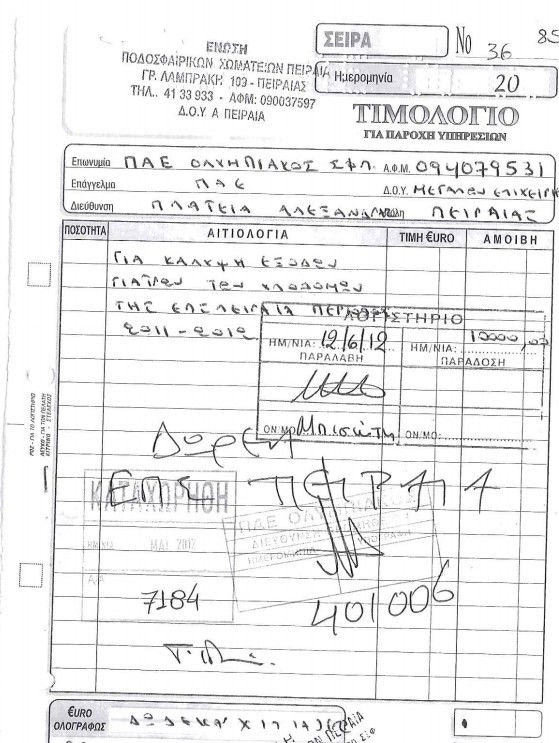 ΕΝΩΣΗ
ΠΟΔΟΣΦΑΙΡΙΚΩΝ ΣΩΜΑΤΕΙΩΝ ΠΕΙΡΑΙΑ
ΓΡ. ΛΑΜΠΡΑΚΗ 103 - ΠΕΙΡΑΙΑΣ
ΤΗΛ.. 41 33 933 - ΑΦΜ: 090037597
Δ.Ο.Υ Α ΠΕΙΡΑΙΑ
ΣΕΙΡΑ No 36 85
Ημερομηνία 20
ΤΙΜΟΛΟΓΙΟ
ΓΙΑ ΠΑΡΟΧΗ ΥΠΗΡΕΣΙΩΝ
Επωνυμία ΠΑΕ ΟΛΥΜΠΙΑΚΟΣ ΣΦΠ Α.Φ.Μ. 094079531
Επάγγελμα ΠΑΕ Δ.Ο.Υ. ΜΕΓΑΛΩΝ ΕΠΙΧΕΙΡΗ
Διεύθυνση ΠΛΑΤΕΙΑ ΑΛΕΞΑΝΔΡΑΣ Πόλη ΠΕΙΡΑΙΑΣ
ΠΟΣΟΤΗΤΑ ΑΙΤΙΟΛΟΓΙΑ ΤΙΜΗ €URO ΑΜΟΙΒΗ
ΓΙΑ ΚΑΛΥΨΗ ΕΞΟΔΩΝ
ΓΙΑΤΡΩΝ ΤΩΝ
ΤΗΣ
2011-2012
ΛΟΓΙΣΤΗΡΙΟ
ΗΜ/ΝΙΑ: 12/6/12 ΗΜ/ΝΙΑ: 10000
ΠΑΡΑΛΑΒΗ ΠΑΡΑΔΟΣΗ
ΟΝ/ΜΟ ΟΝ/ΜΟ:
Δωρεά
ΕΠΣ ΠΕΙΡΑΙΑ
ΚΑΤΑΧΩΡΗΘΗ
ΗΜ/ΝΙΑ ΜΑΙ
ΠΑΕ ΟΛΥΜΠΙΑΚΟΣ
ΔΙΕΥΘΥΝΣΗ
ΗΜΕΡΟΜΗΝΙΑ ΥΠΟΓΡΑΦΗ
Α/Α
7184 401006
€URO
ΟΛΟΓΡΑΦΩΣ ΔΩΔΕΚΑ ΧΙΛΙΑΔΕΣ